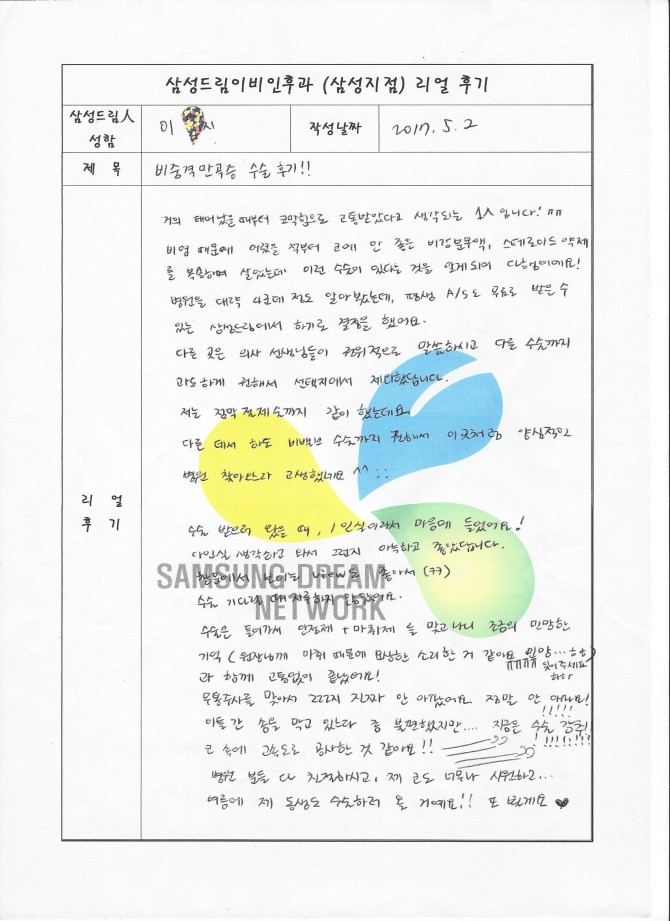 삼성드림이비인후과 (삼성지점) 리얼 후기
삼성드림人 성함
이 지
작성날짜
2017. 5. 2
제 목
비중격만곡증 수술 후기!!
리 얼
후 기
거의 태어났을때부터 코막힘으로 고통받았다고 생각되는 1人입니다! ㅠㅠ
비염 때문에 어렸을 적부터 코에 안 좋은 비강분무액, 스테로이드 약제
를 복용하며 살았는데 이런 수술이 있다는 것을 알게되어 다행이에요!
병원을 대략 4군데 적도 알아봤는데, 평생 A/S도 무료로 받을 수
있는 삼성드림에서 하기로 결정을 했어요.
다른 곳은 의사 선생님들이 권위적으로 말씀하시고 다른 수술까지
과도하게 권해서 선택지에서 제외했답니다.
저는 점막절제술까지 같이 했는데요
다른 데서 하도 비밸브 수술까지 권해서 이곳처럼 양심적인
병원 찾아보느라 고생했네요 ^^ ::
수술 받으러 왔을 때, 1인실이라서 마음에 들었어요!
다인실 생각하고 와서 그런지 아늑하고 좋았답니다.
창문에서 보이는 view도 좋아서 (ㅋㅋ)
수술 기다릴 때 지루하지 않았어요.
SAMSUNG DREAM
NETWORK
수술은 들어가서 안정제 + 마취제 를 맞고나니 조금의 민망한
기억 ( 원장님께 마취 때문에 요상한 소리한 거 같아요 으앙... 하핳)
ㅠㅠㅠㅠ 잊어주세요
하하
과 함께 고통없이 끝났어요!
무통주사를 맞아서 그런지 진짜 안 아팠어요 정말 안 아파요!
!!!!!
이틀 간 솜을 막고 있는다 좀 불편했지만.... 지금은 수술 강추!
!!!!!!!!
코 속에 고속도로 공사한 것 같아요!!
병원 분들 다 친절하시고, 제 코도 너무나 시원하고...
여름에 제 동생도 수술하러 올 거예요!! 또 뵐게요 ♥